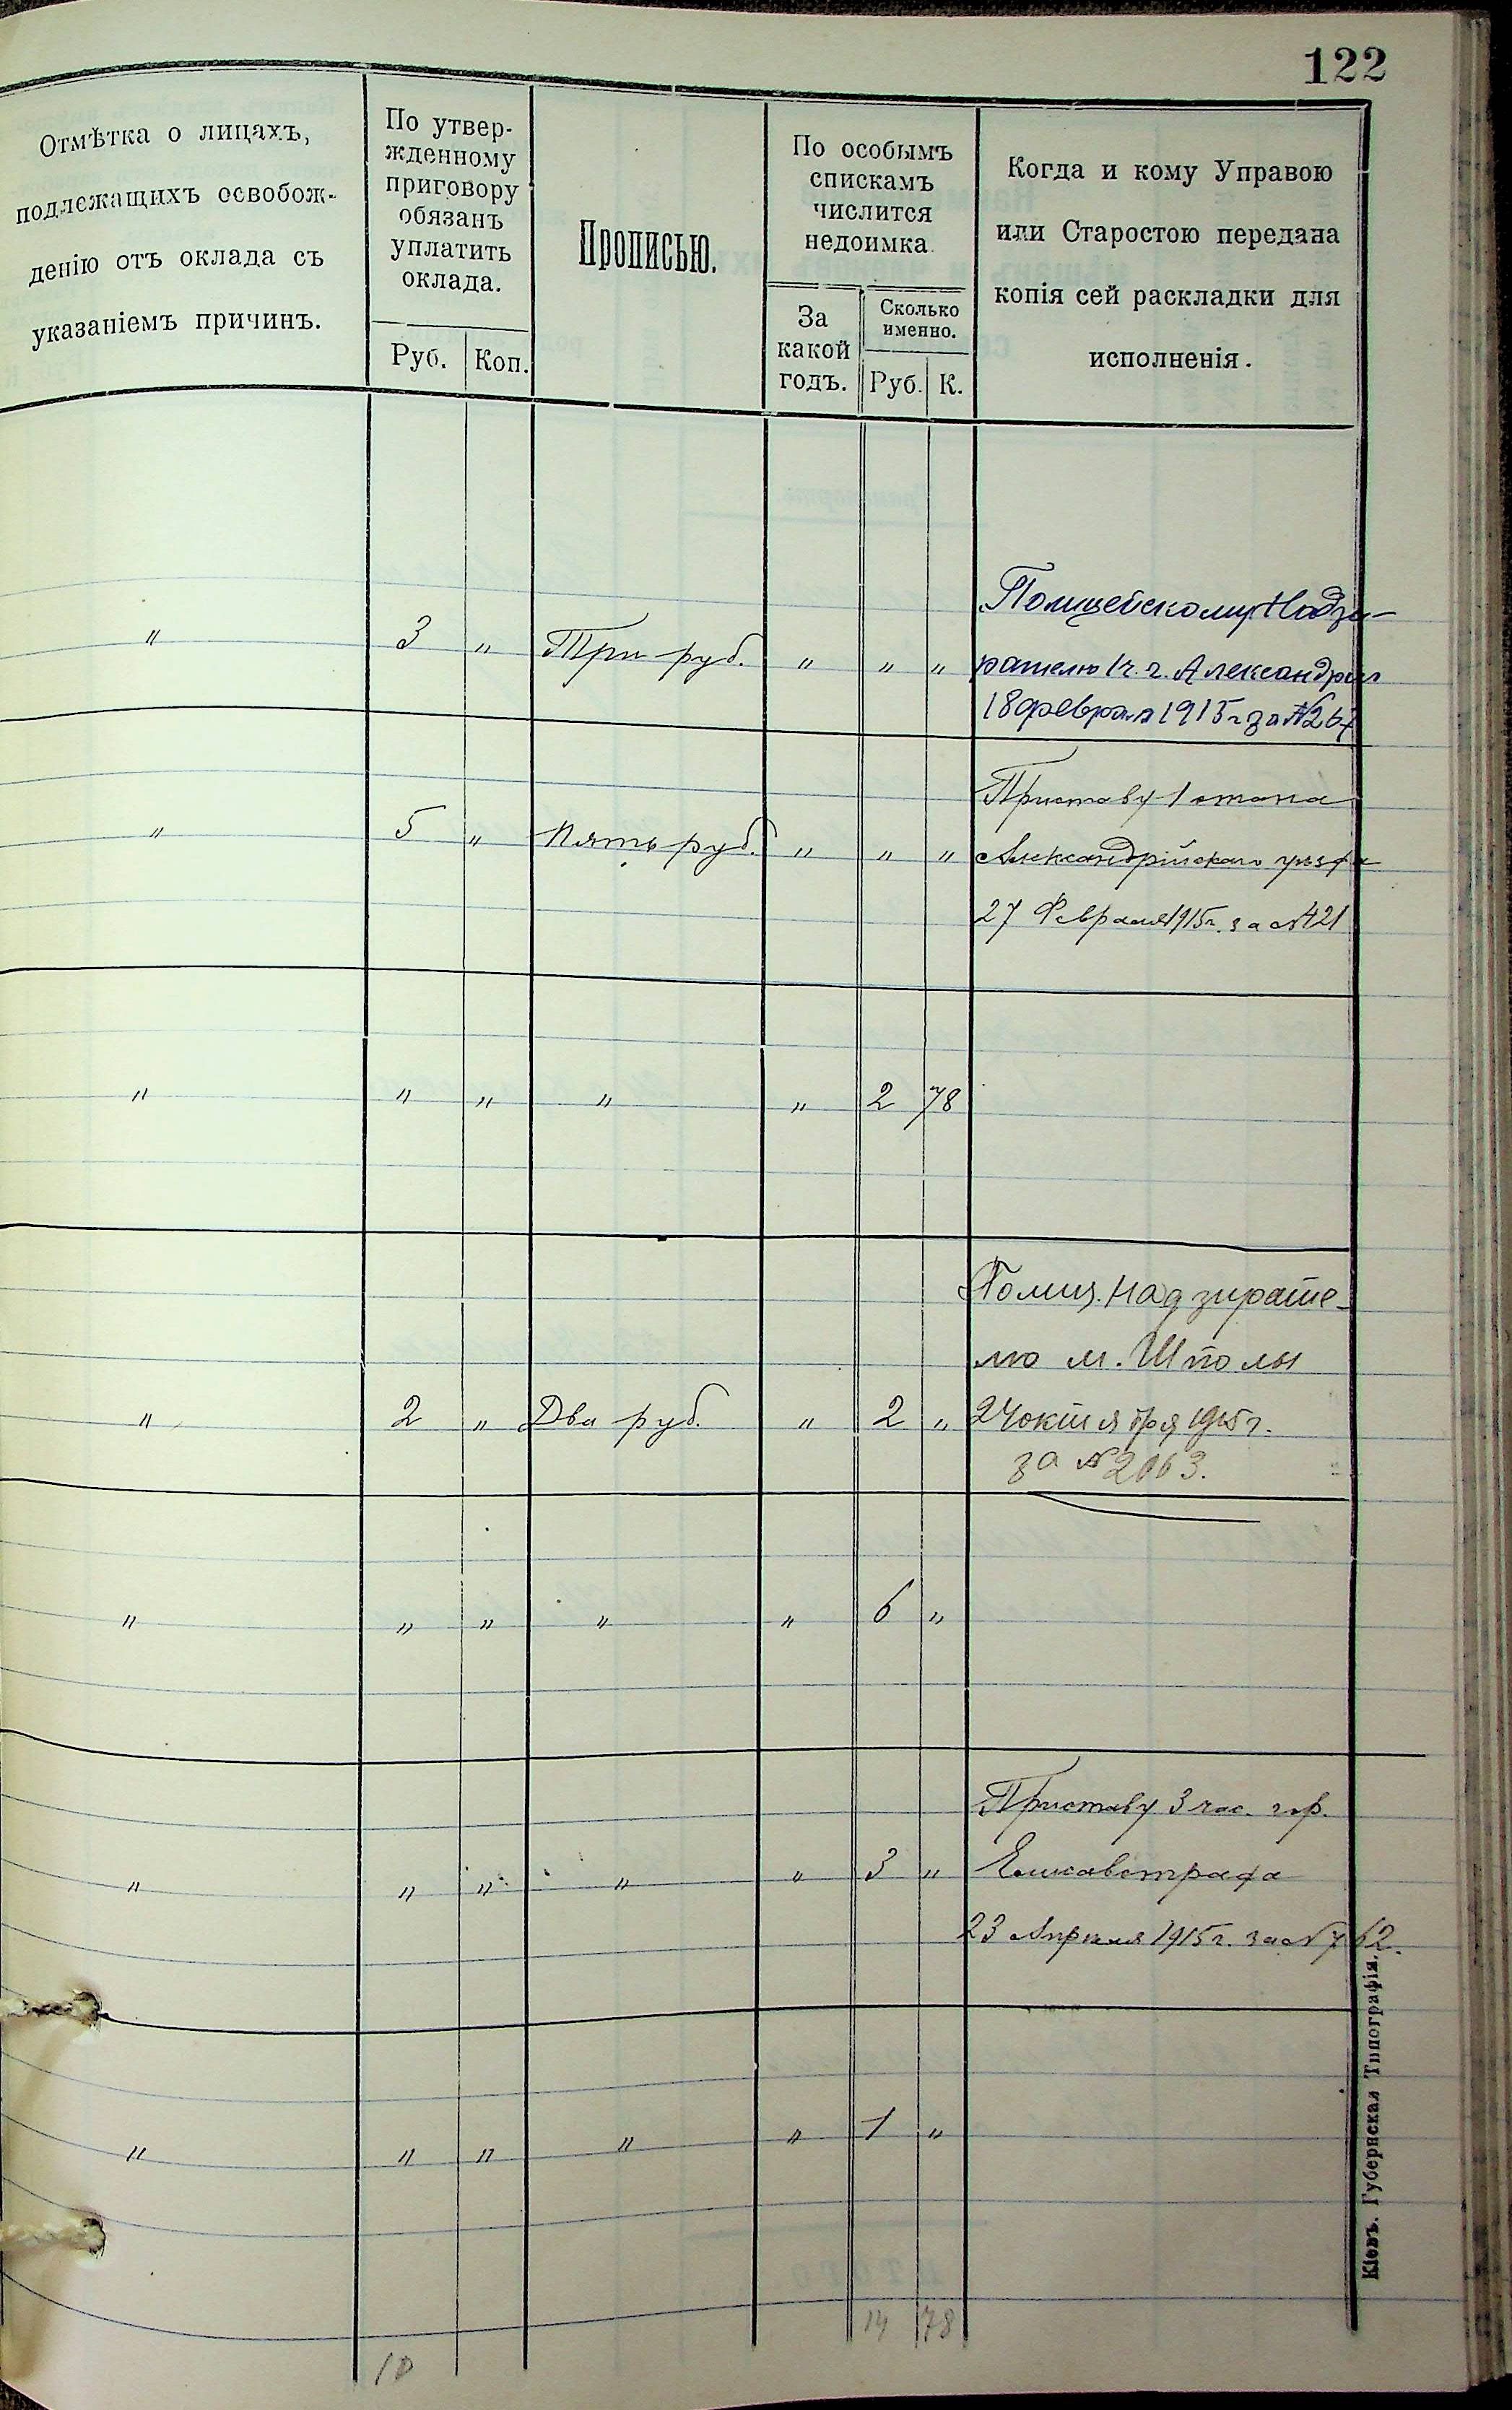 122
Отмѣтка о лицахъ,
подлежащихъ освобож-
денію отъ оклада съ
указаніемъ причинъ.
По утвер-
жденному
приговору
обязанъ
уплатить
оклада.
Руб. Коп.
Прописью.
По особымъ
спискамъ
числится
недоимка.
За
какой
годъ.
Сколько
именно.
Руб. К.
Когда и кому Управою
или Старостою передана
копія сей раскладки для
исполненія.
Полицейскому Надзи-
" 3 " Три руб. " " " рателю 1 ч. г. Александріи
18 февраля 1915 г за №267
Приставу 1 стана
" 5 " Пять руб. " " " Александрійскаго уѣзда
27 Февраля 1915 г. за № 421
" " " " " 2 78
Полиц. Надзирате-
лю м. Шполы
" 2 " Два руб. " 2 " 24 октября 1915 г.
за № 2063.
" " " " " 6 "
Приставу 3 час. гор.
" " " " " 3 " Елисаветграда
23 Апрѣля 1915 г. за № 762.
" " " " " 1 "
10 14 78
Кіевъ. Губернская Типографія.